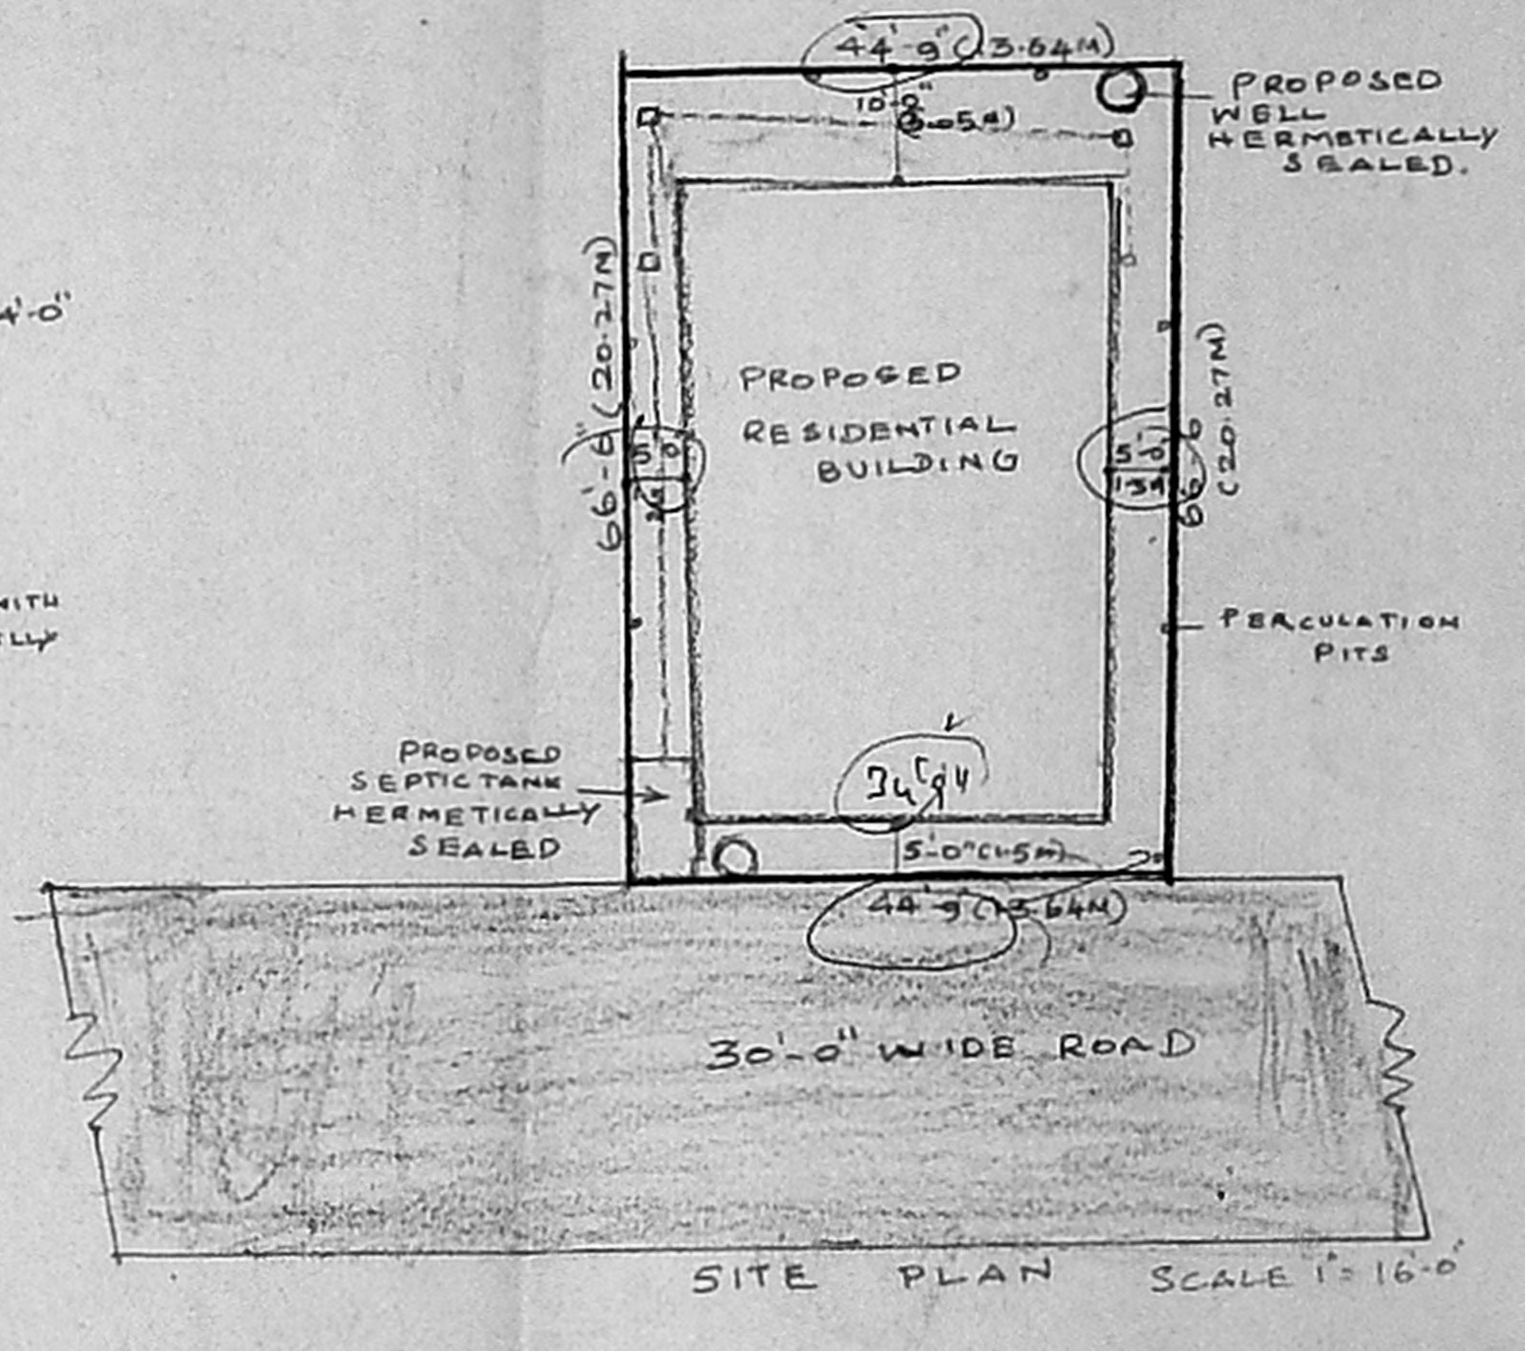 44'-9" (13.64M)
10'-0"
(3.05M)
PROPOSED
WELL
HERMETICALLY
SEALED.
4'-0"
66'-6" (20.27M)
PROPOSED
RESIDENTIAL
BUILDING
5'0"
5'-0"
66'-6
(20.27M)
WITH
LLY
PERCULATION
PITS
PROPOSED
SEPTIC TANK
HERMETICALLY
SEALED
34'9"
5'-0" (1.5M)
44'-9 (13.64M)
30'-0" WIDE ROAD
SITE PLAN SCALE 1" = 16'-0"